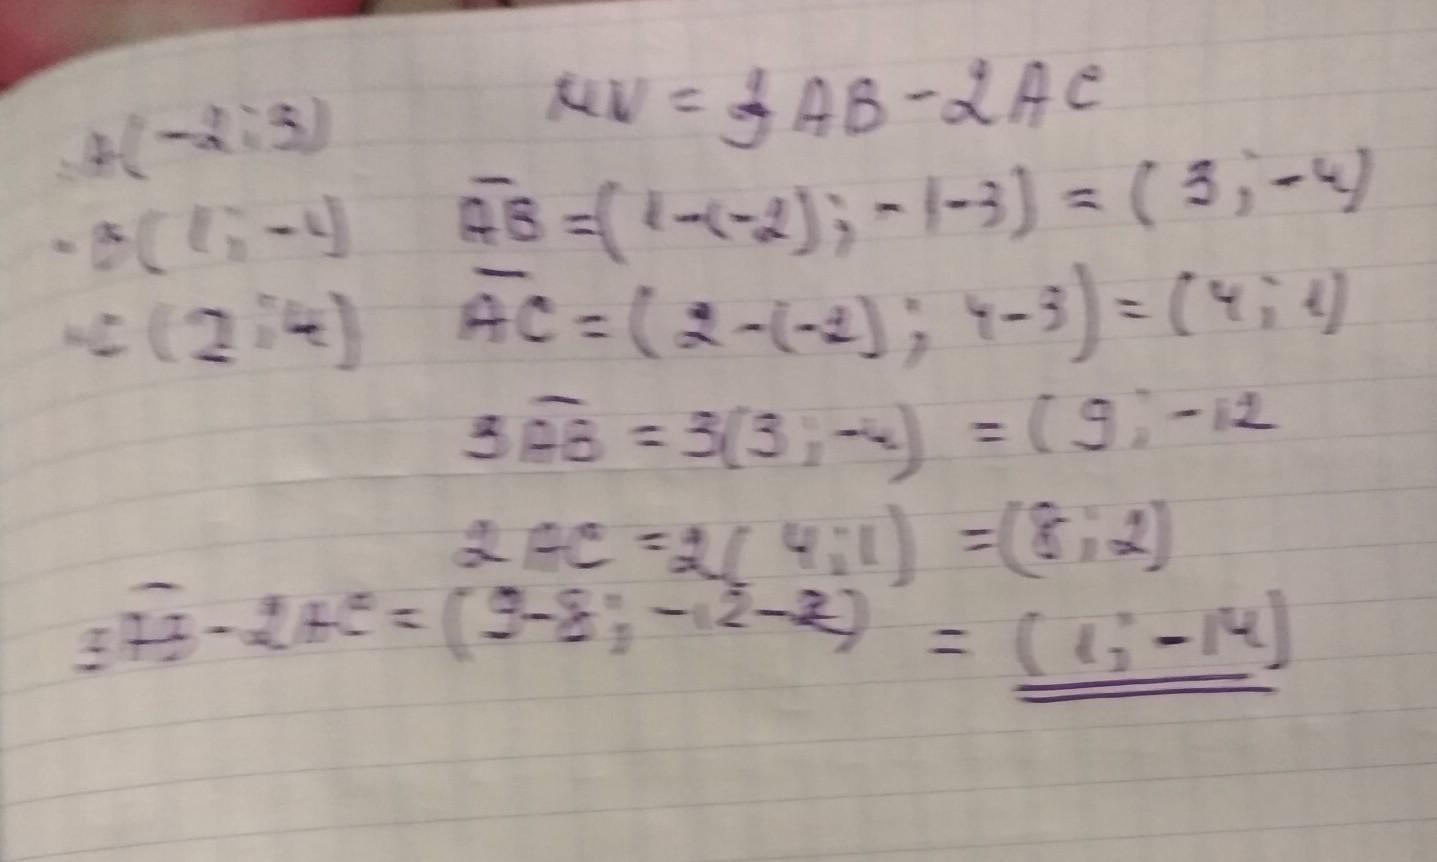 MN = 3 AB - 2 AC
A(-2; 3)
B(1; -1) AB = (1-(-2); -1-3) = (3; -4)
C(2; 4) AC = (2-(-2); 4-3) = (4; 1)
3 AB = 3(3; -4) = (9; -12
2 AC = 2(4; 1) = (8; 2)
3AB - 2AC = (9-8; -12-2) = (1; -14)